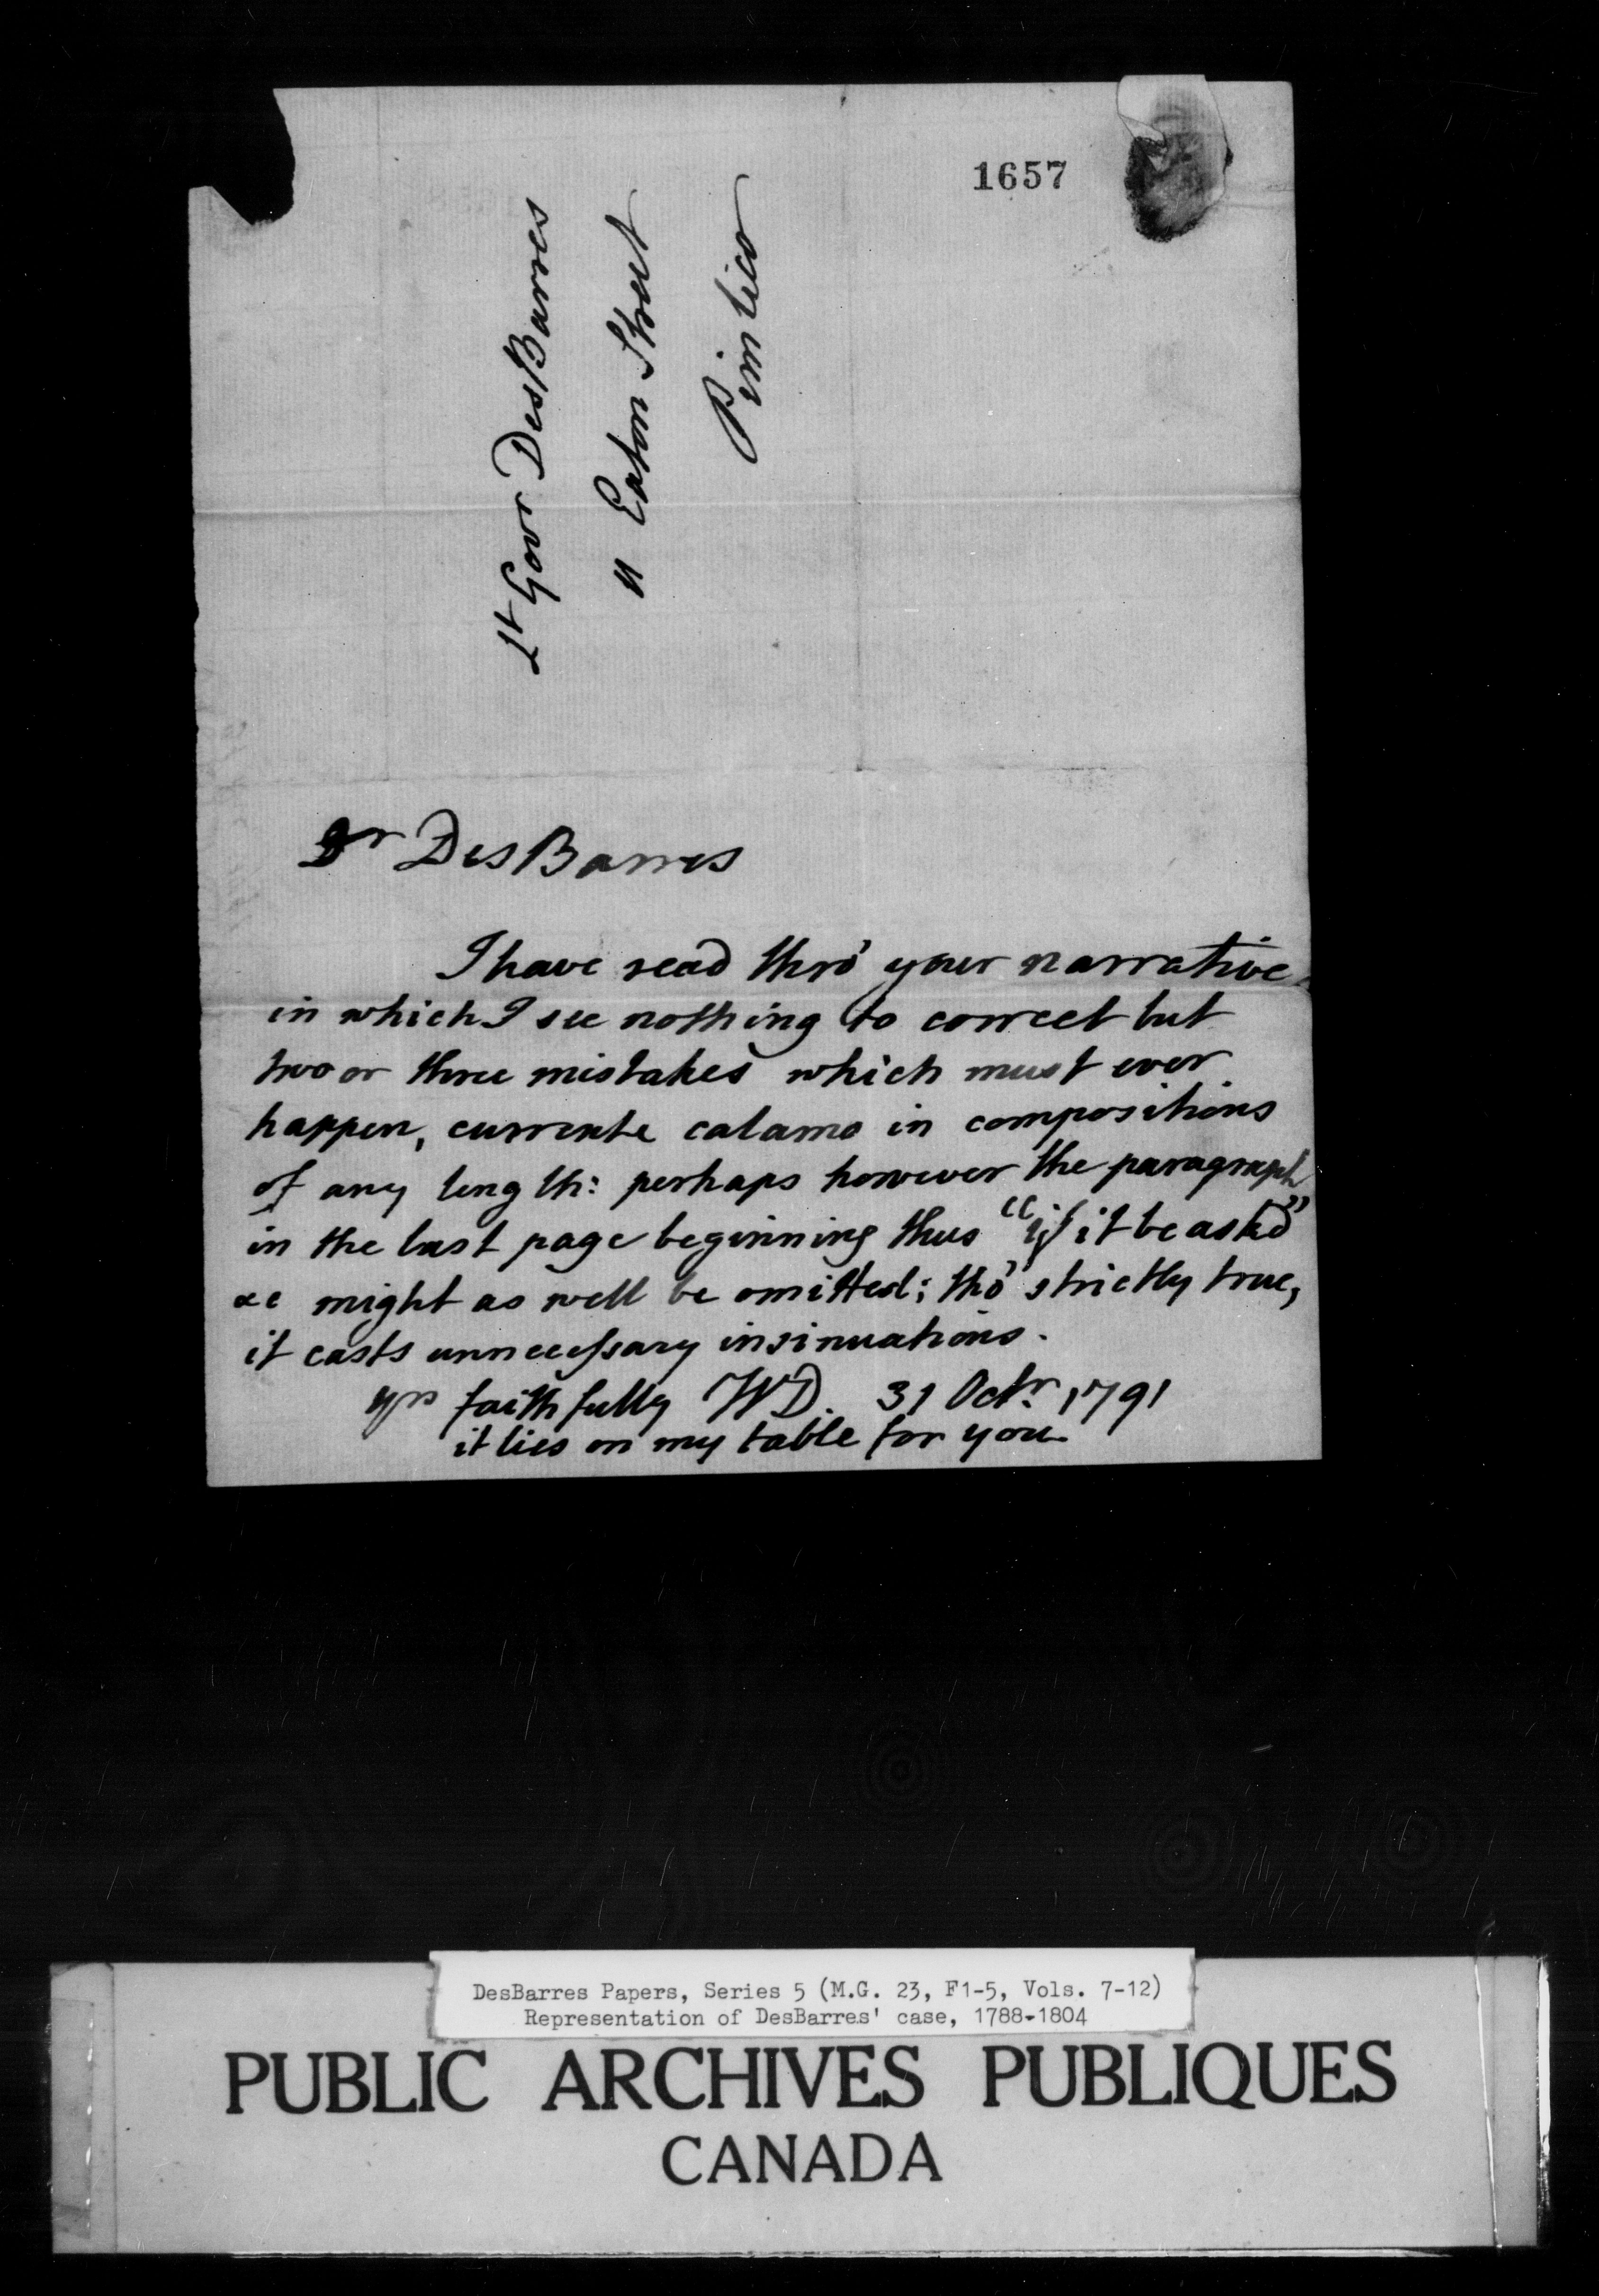 1657
Lt Govr DesBarres
11 Eaton Street
Pimlico
Dr DesBarres
I have read thro' your narrative
in which I see nothing to correct but
two or three mistakes which must ever
happen, currente calamo in compositions
of any length: perhaps however the paragraph
in the last page beginning thus "if it be asked"
&c might as well be omitted; tho' strictly true,
it casts unnecessary insinuations.
yrs faithfully WD. 31 Octr. 1791
it lies on my table for you.
DesBarres Papers, Series 5 (M.G. 23, F1-5, Vols. 7-12)
Representation of DesBarres' case, 1788-1804
PUBLIC ARCHIVES PUBLIQUES
CANADA